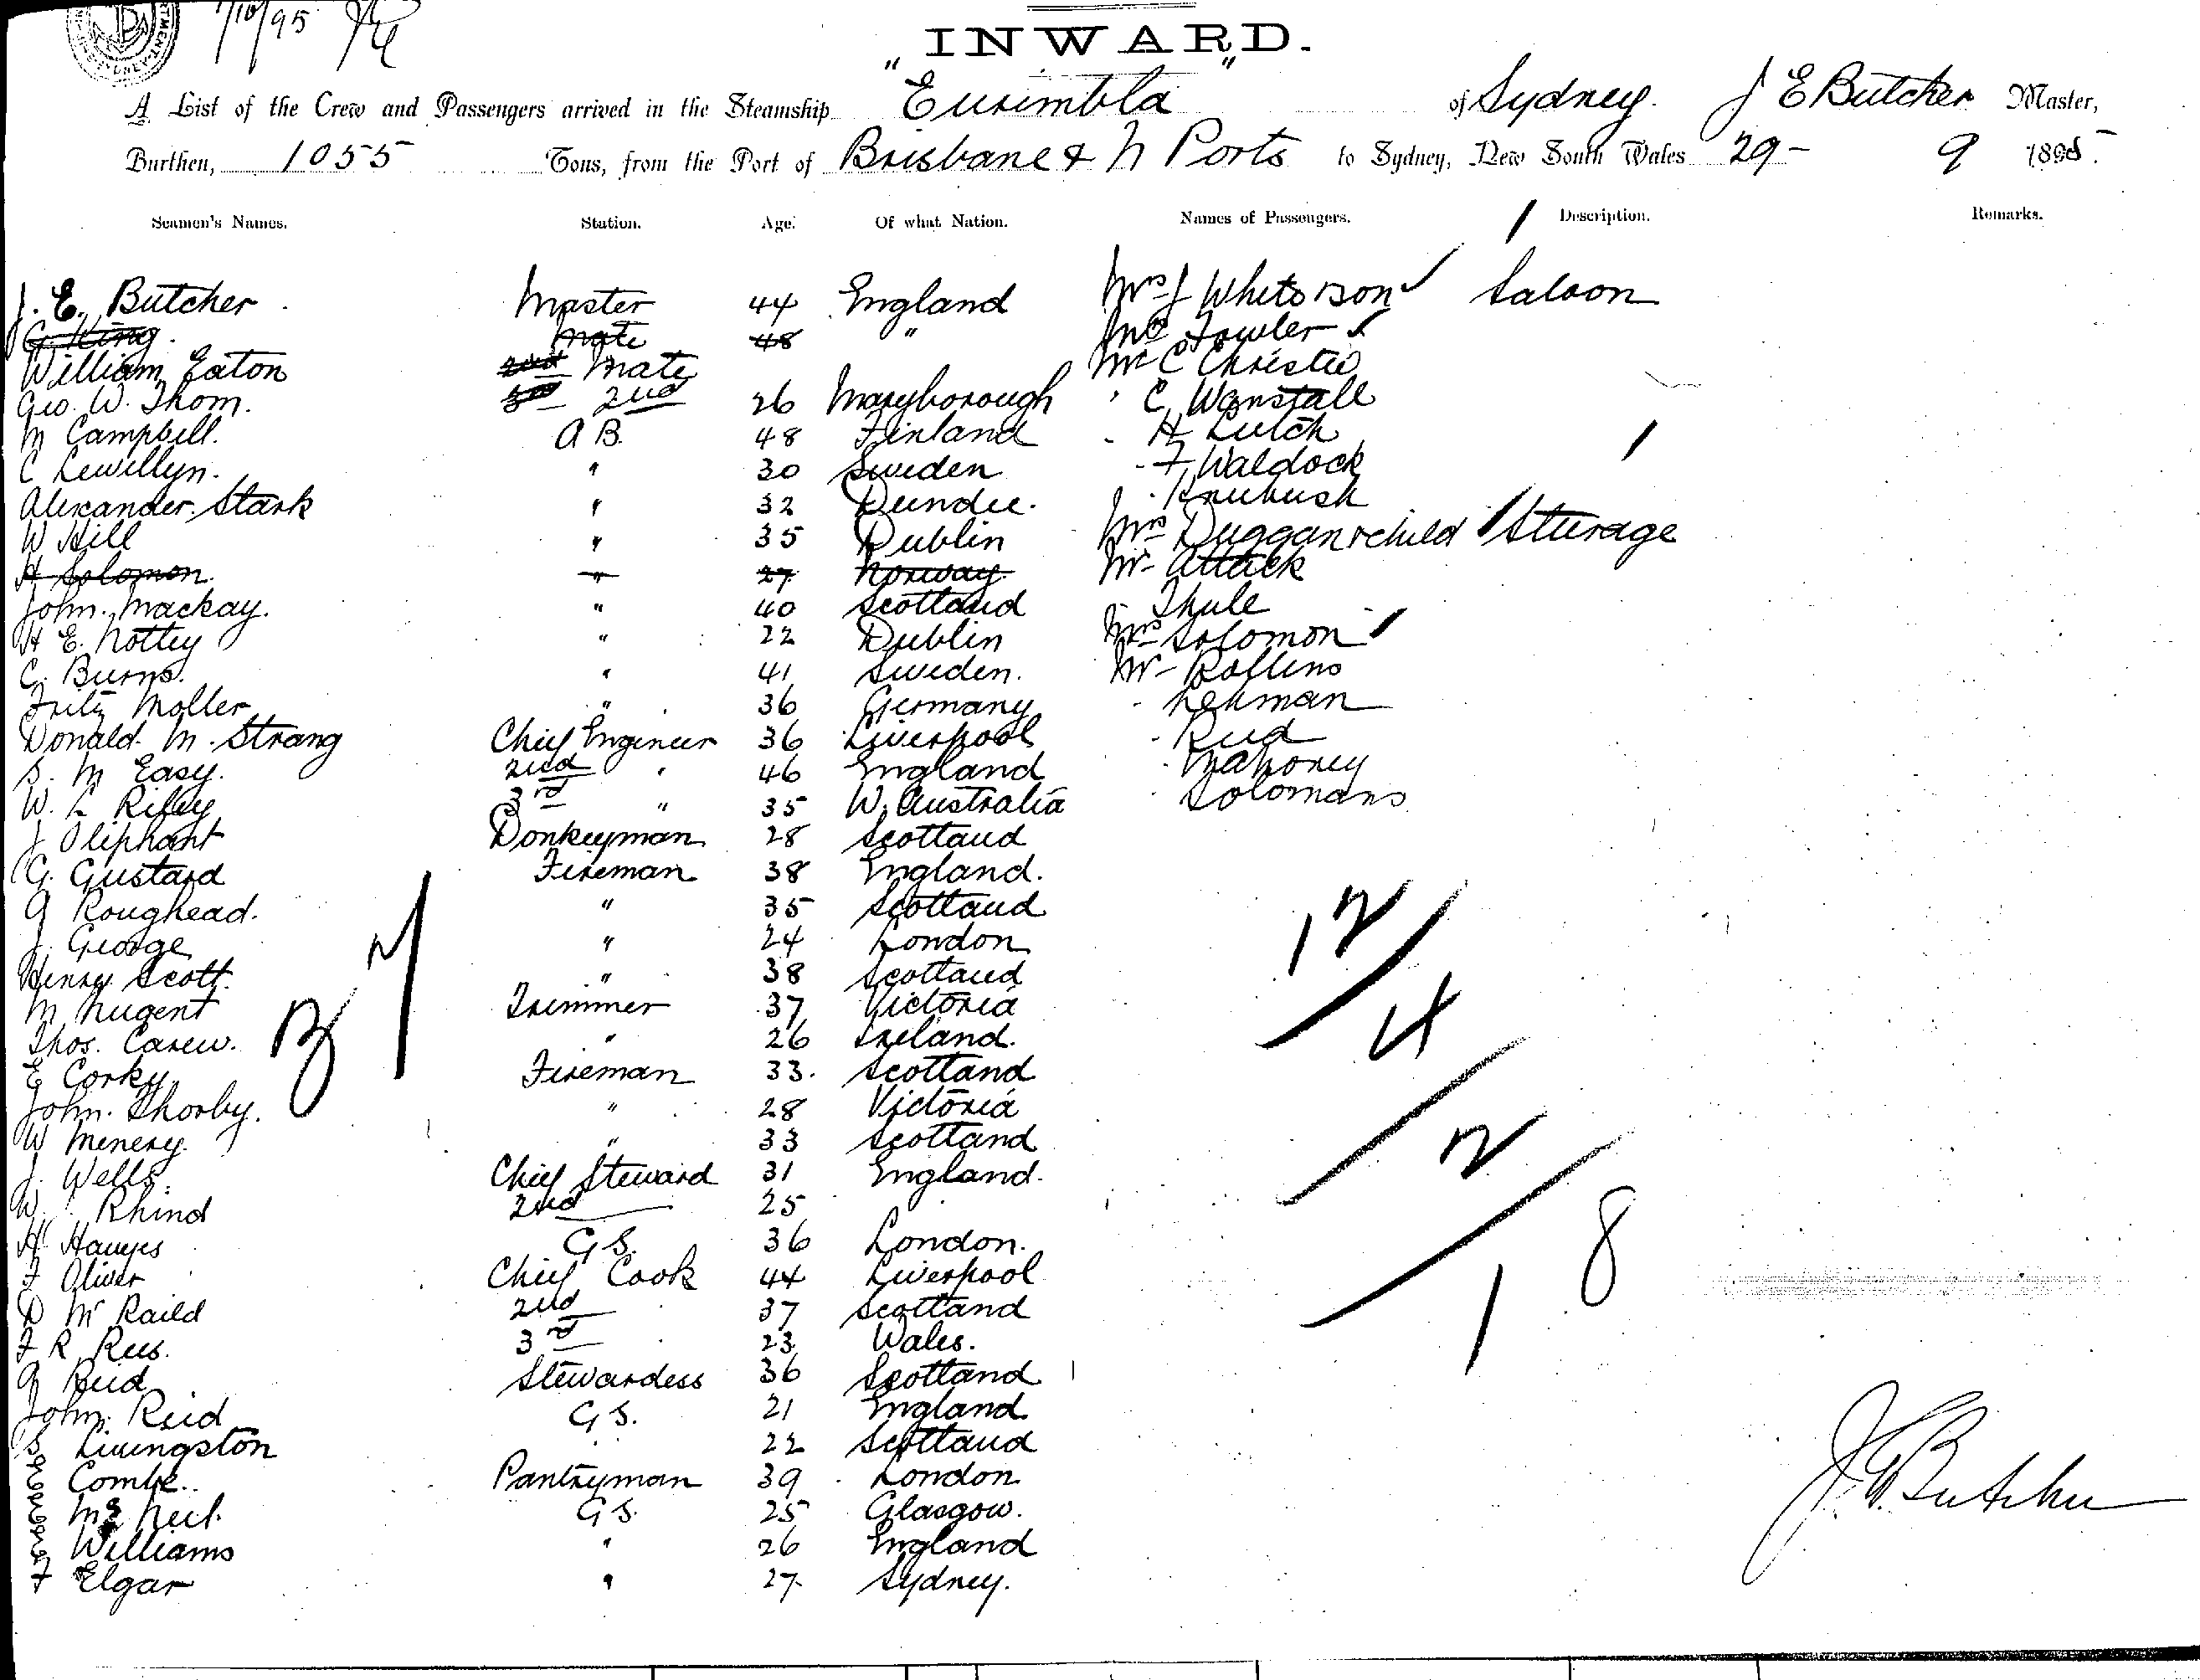 7/10/95
INWARD.
A List of the Crew and Passengers arrived in the Steamship "Eurimbla" of Sydney. J E Butcher Master,
Burthen, 1055 Tons, from the Port of Brisbane & N Ports to Sydney, New South Wales 29- 9 1895.
Seamen's Names. Station. Age. Of what Nation. Names of Passengers. Description. Remarks.
J. E. Butcher Master 44 England Mrs J Saloon
G King. Mate 48 " Fowler
William Eaton 2nd Mate Mr C Christie
Geo. W. Thom. 3rd 2nd 26 Maryborough " C Wanstall
M Campbell. A B. 48 Finland - H Lutch
C Lewillyn. " 30 Sweden - F Waldock
Alexander Stark " 32 Dundee.
W Hill " 35 Dublin Mrs Duggan & child Sturage
H Solomon. " 27 Norway. Mr Attack
John Mackay. " 40 Scotland Thule
H E. Nottey " 22 Dublin Mrs Solomon
C. Burns. " 41 Sweden. Mr Rollins
Fritz Moller " 36 Germany - Lehman
Donald M. Strang Chief Engineer 36 Liverpool - Reid
S. M Easy. 2nd " 46 England - Mahoney
W. L Riley 3rd " 35 W. Australia - Solomans
J Oliphant Donkeyman 28 Scotland
G. Gustard Fireman 38 England.
A Roughead. " 35 Scotland
J. George " 24 London
Henry Scott. " 38 Scotland
M Nugent Trimmer 37 Victoria
Thos. Carew. " 26 Ireland.
E Corky Fireman 33. Scotland
John Thorby. " 28 Victoria
W Menery. " 33 Scotland
J. Wells. Chief Steward 31 England.
W. Rhind 2nd 25
H Hawes G S. 36 London.
F Oliver Chief Cook 44 Liverpool
D Mc Raild 2nd 37 Scotland
F R Rees. 3rd 23 Wales.
A Reid Stewardess 36 Scotland
John Reid G S. 21 England
S Livingston 22 Scotland
Combe.. Pantryman 39 London
Mc Neil. G S. 25 Glasgow.
Williams " 26 England
F Elgar " 27 Sydney.
12/4/2/8
1
J. E. Butcher